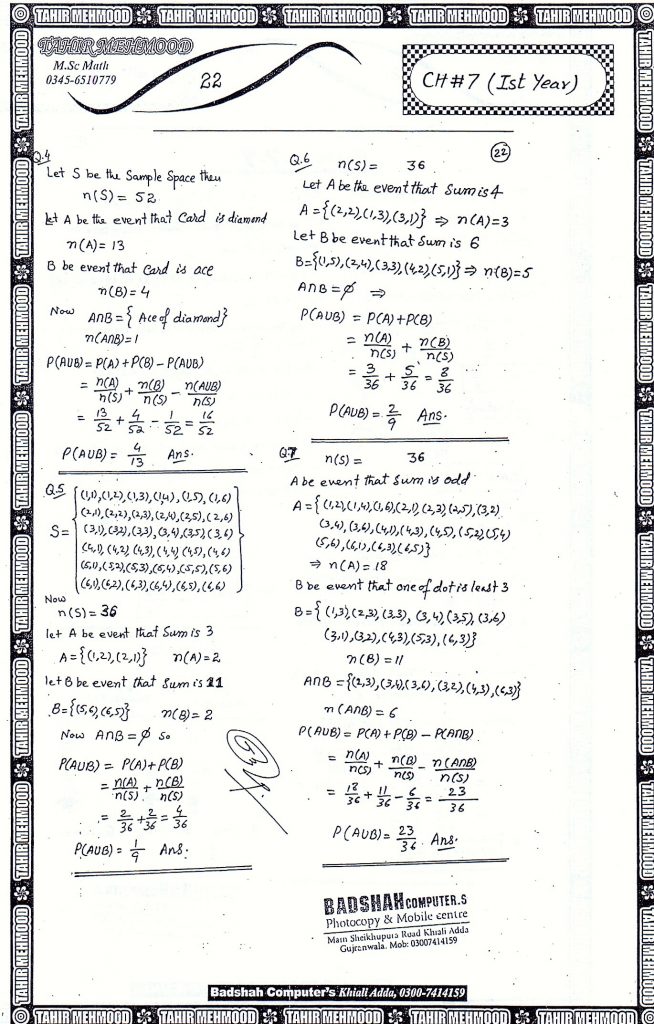 TAHIR MEHMOOD TAHIR MEHMOOD TAHIR MEHMOOD TAHIR MEHMOOD TAHIR MEHMOOD
TAHIR MEHMOOD
M.Sc Math
0345-6510779
22
CH#7 (Ist Year)
Q.4
Let S be the Sample Space then
n(S) = 52
let A be the event that Card is diamond
n(A) = 13
B be event that Card is ace
n(B) = 4
Now A∩B = { Ace of diamond}
n(A∩B) = 1
P(AUB) = P(A) + P(B) - P(AUB)
= n(A)/n(S) + n(B)/n(S) - n(AUB)/n(S)
= 13/52 + 4/52 - 1/52 = 16/52
P(AUB) = 4/13 Ans.
Q.5
S = { (1,1),(1,2),(1,3),(1,4),(1,5),(1,6)
(2,1),(2,2),(2,3),(2,4),(2,5),(2,6)
(3,1),(3,2),(3,3),(3,4),(3,5),(3,6)
(4,1),(4,2),(4,3),(4,4),(4,5),(4,6)
(5,1),(5,2),(5,3),(5,4),(5,5),(5,6)
(6,1),(6,2),(6,3),(6,4),(6,5),(6,6) }
Now
n(S) = 36
let A be event that Sum is 3
A = {(1,2),(2,1)} n(A) = 2
let B be event that Sum is 11
B = {(5,6),(6,5)} n(B) = 2
Now A∩B = ∅ so
P(AUB) = P(A) + P(B)
= n(A)/n(S) + n(B)/n(S)
= 2/36 + 2/36 = 4/36
P(AUB) = 1/9 Ans.
22
Q.6 n(S) = 36
Let A be the event that Sum is 4
A = {(2,2),(1,3),(3,1)} ⇒ n(A) = 3
Let B be event that Sum is 6
B = {(1,5),(2,4),(3,3),(4,2),(5,1)} ⇒ n(B) = 5
A∩B = ∅ ⇒
P(AUB) = P(A) + P(B)
= n(A)/n(S) + n(B)/n(S)
= 3/36 + 5/36 = 8/36
P(AUB) = 2/9 Ans.
Q.7 n(S) = 36
A be event that Sum is odd
A = { (1,2),(1,4),(1,6),(2,1),(2,3),(2,5),(3,2)
(3,4),(3,6),(4,1),(4,3),(4,5),(5,2),(5,4)
(5,6),(6,1),(6,3),(6,5)}
⇒ n(A) = 18
B be event that one of dot is least 3
B = { (1,3),(2,3),(3,3),(3,4),(3,5),(3,6)
(3,1),(3,2),(4,3),(5,3),(6,3)}
n(B) = 11
A∩B = {(2,3),(3,4),(3,6),(3,2),(4,3),(6,3)}
n(A∩B) = 6
P(AUB) = P(A) + P(B) - P(A∩B)
= n(A)/n(S) + n(B)/n(S) - n(A∩B)/n(S)
= 18/36 + 11/36 - 6/36 = 23/36
P(AUB) = 23/36 Ans.
BADSHAH COMPUTER.S
Photocopy & Mobile centre
Main Sheikhupura Road Khiali Adda
Gujranwala. Mob: 03007414159
Badshah Computer's Khiali Adda, 0300-7414159
TAHIR MEHMOOD TAHIR MEHMOOD TAHIR MEHMOOD TAHIR MEHMOOD TAHIR MEHMOOD